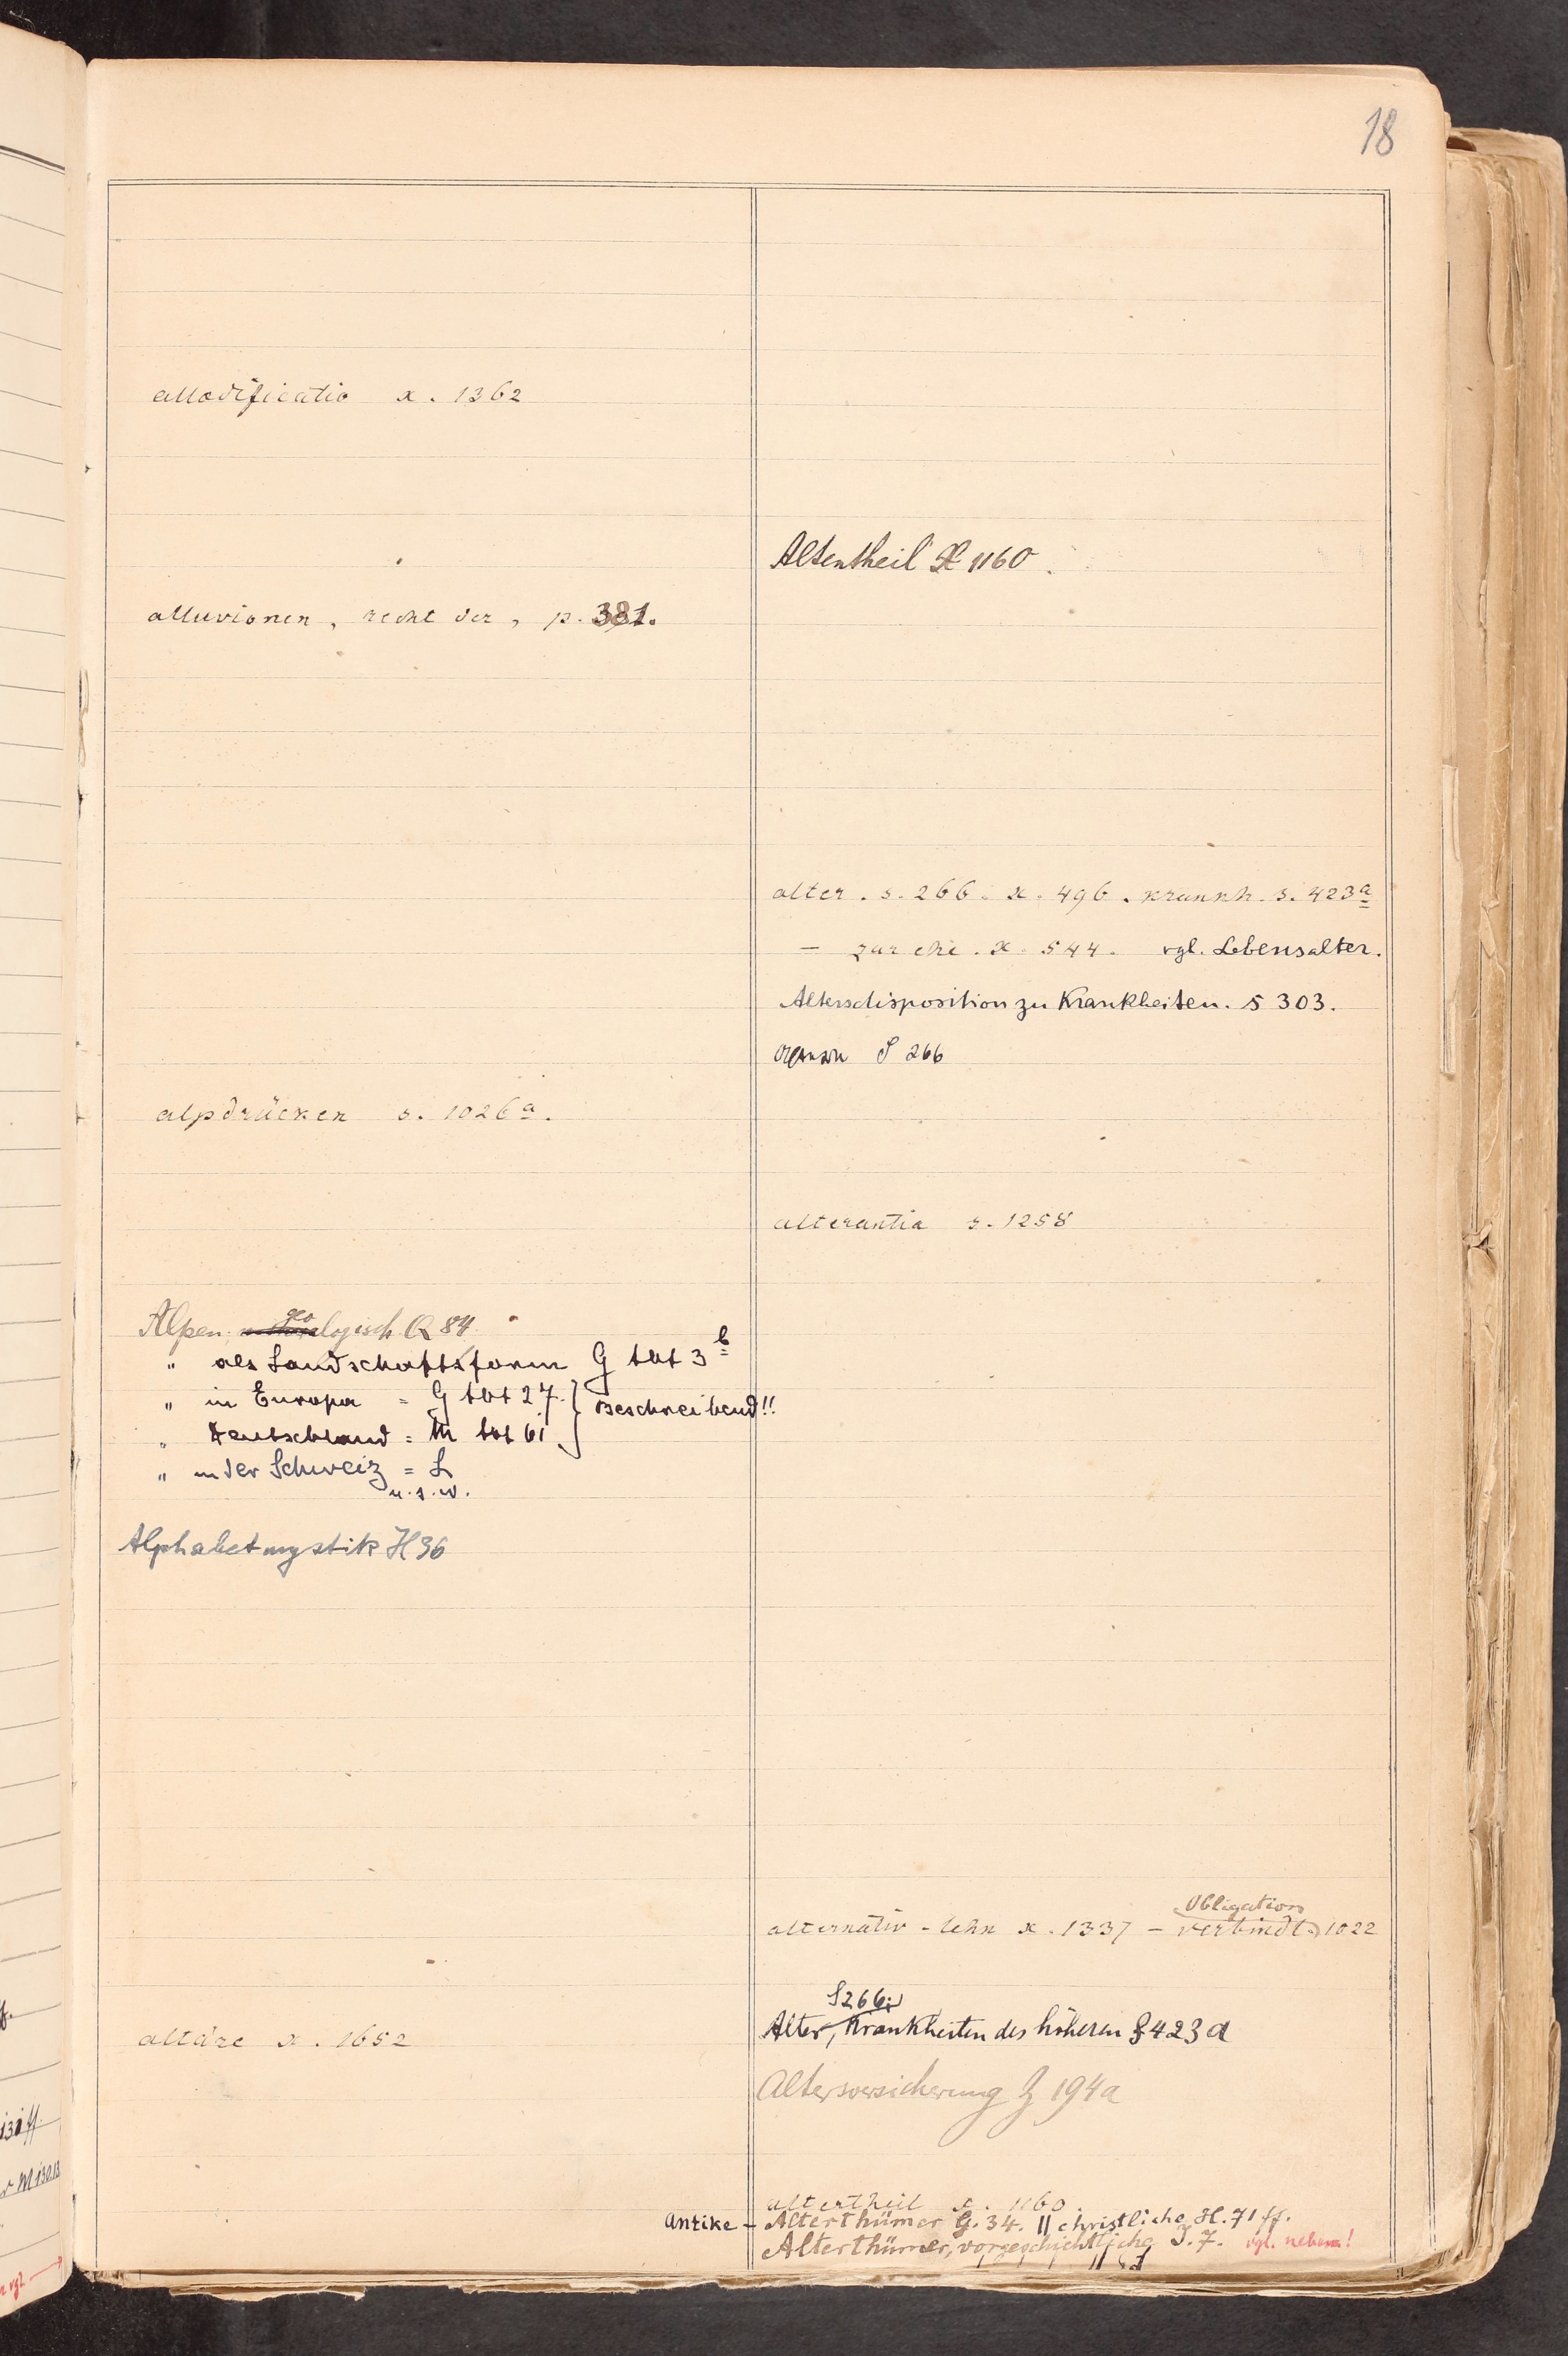 18
allodificatio x. 1362
alluvionen, recht der, p. 381.
alpdrücken s. 1026a.
Alpen, geologisch Q 84
" als Landschaftsform G tbt 3b
" in Europa = G tbt 27. } Beschreibend!!
" Deutschland = M tbt 61
" in der Schweiz = L
u.s.w.
Alphabetmystik H 36
altäre x. 1652
Altentheil X 1160.
alter. s. 266. x. 496. krankh. s. 423a
— zur ehe. x. 544. vgl. Lebensalter.
Altersdisposition zu Krankheiten. S 303.
S 266
alterantia s. 1258
Obligation
alternativ-lehn x. 1337 — verbindl. 1022
S 266;
Alter, Krankheiten des höheren S 423 a
Altersversicherung Z 194a
altertheil x. 1160.
Antike - Alterthümer G. 34. || christliche H. 71 ff.
Alterthümer, vorgeschichtliche J. 7. vgl. neben!